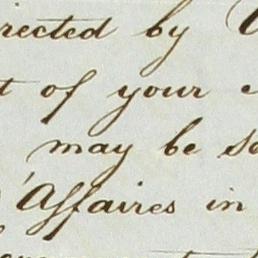 rected by
of your
may be so
'Affaires in